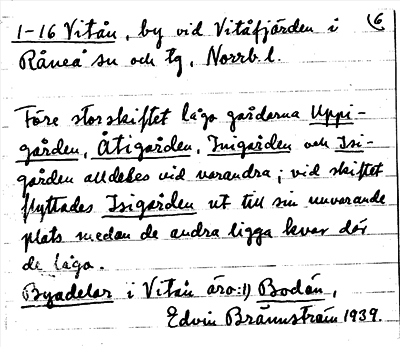 1-16 Vitån, by vid Vitåfjärden i (6
Råneå sn och tg, Norrb. l.
Före storskiftet lågo gårdarna Uppi-
gården, Åtigården, Inigården och Isi-
gården alldeles vid varandra; vid skiftet
flyttades Isigården ut till sin nuvarande
plats medan de andra ligga kvar där
de lågo.
Byadelar i Vitån äro: 1) Bodån,
Edvin Brännström 1939.